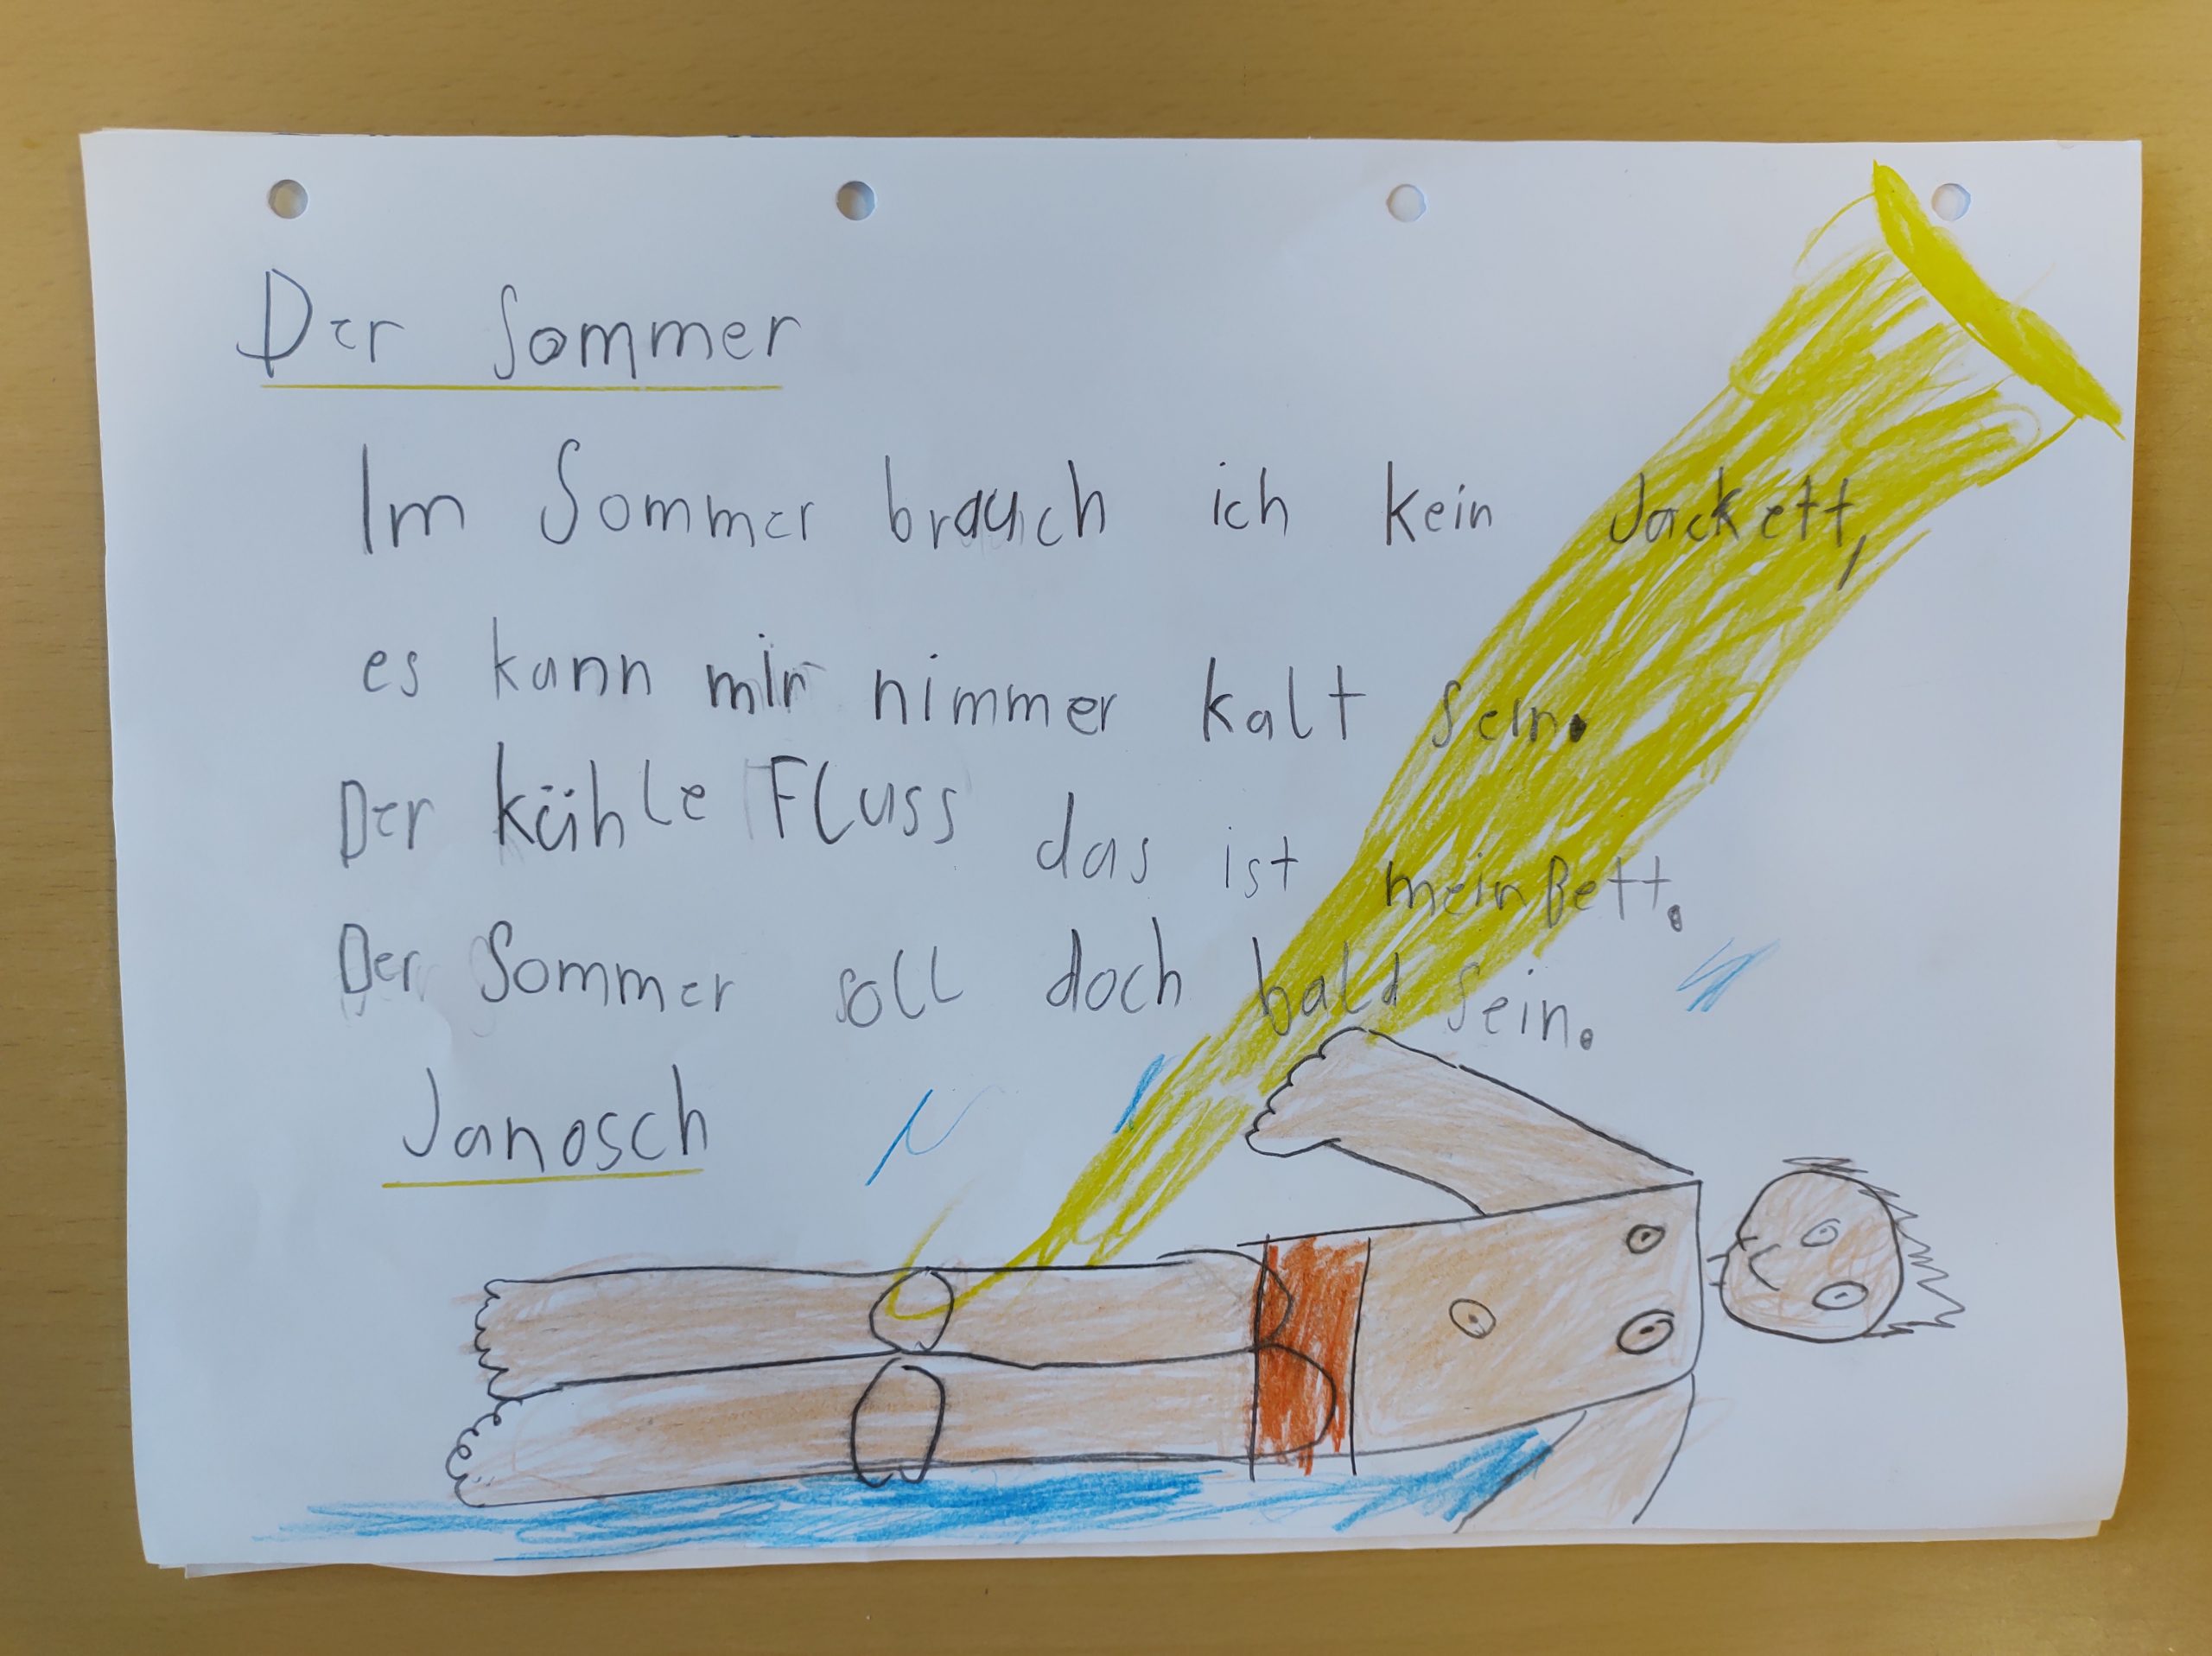 Der Sommer
Im Sommer brauch ich kein Jackett,
es kann mir nimmer kalt sein.
Der kühle Fluss das ist mein Bett.
Der Sommer soll doch bald sein.
Janosch